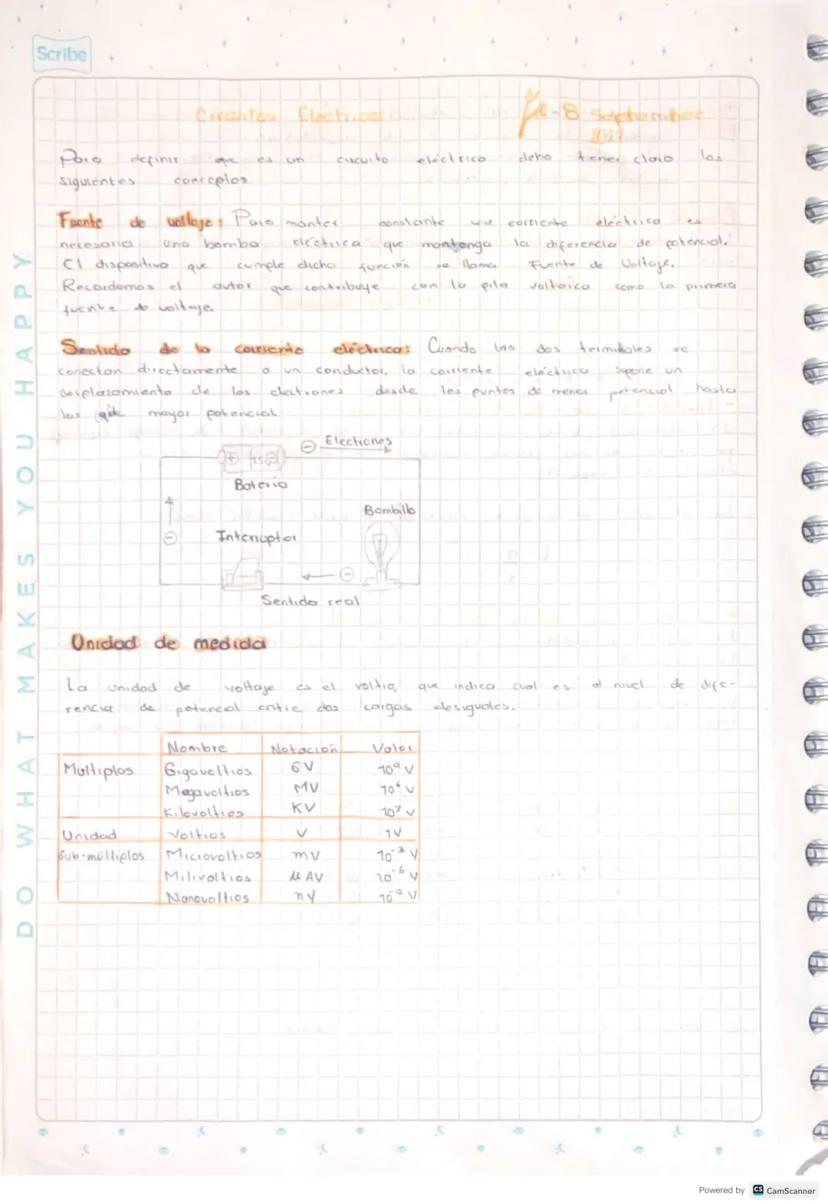 Scribe
Circuitos Eléctricos
8 September
Para definir que es un circuito eléctrico debo tener claro los
siguientes conceptos
Fuente de voltaje: Para manter constante una corriente eléctrica es
necesaria una bomba eléctrica que mantenga la diferencia de potencial.
El dispositivo que cumple dicha función se llama Fuente de Voltaje.
Recordemos el autor que contribuye con la pila voltaica como la primera
fuente de voltaje.
Sentido de la corriente eléctrica: Cuando las dos terminales se
conectan directamente a un conductor, la corriente eléctrica supone un
desplazamiento de los electrones desde los puntos de menor potencial hasta
los de mayor potencial
⊖ Electrones
Batería
Bombillo
Interruptor
Sentido real
Unidad de medida
La unidad de voltaje es el voltio, que indica cual es el nivel de dife-
rencia de potencial entre dos cargas desiguales.
Nombre Notación Valor
Multiplos Gigavoltios GV 10⁹ V
Megavoltios MV 10⁶ V
Kilovoltios KV 10³ V
Unidad Voltios V 1V
Sub-múltiplos Microvoltios mV 10⁻³ V
Milivoltios µAV 10⁻⁶ V
Nanovoltios nV 10⁻⁹ V
DO WHAT MAKES YOU HAPPY
Powered by CS CamScanner